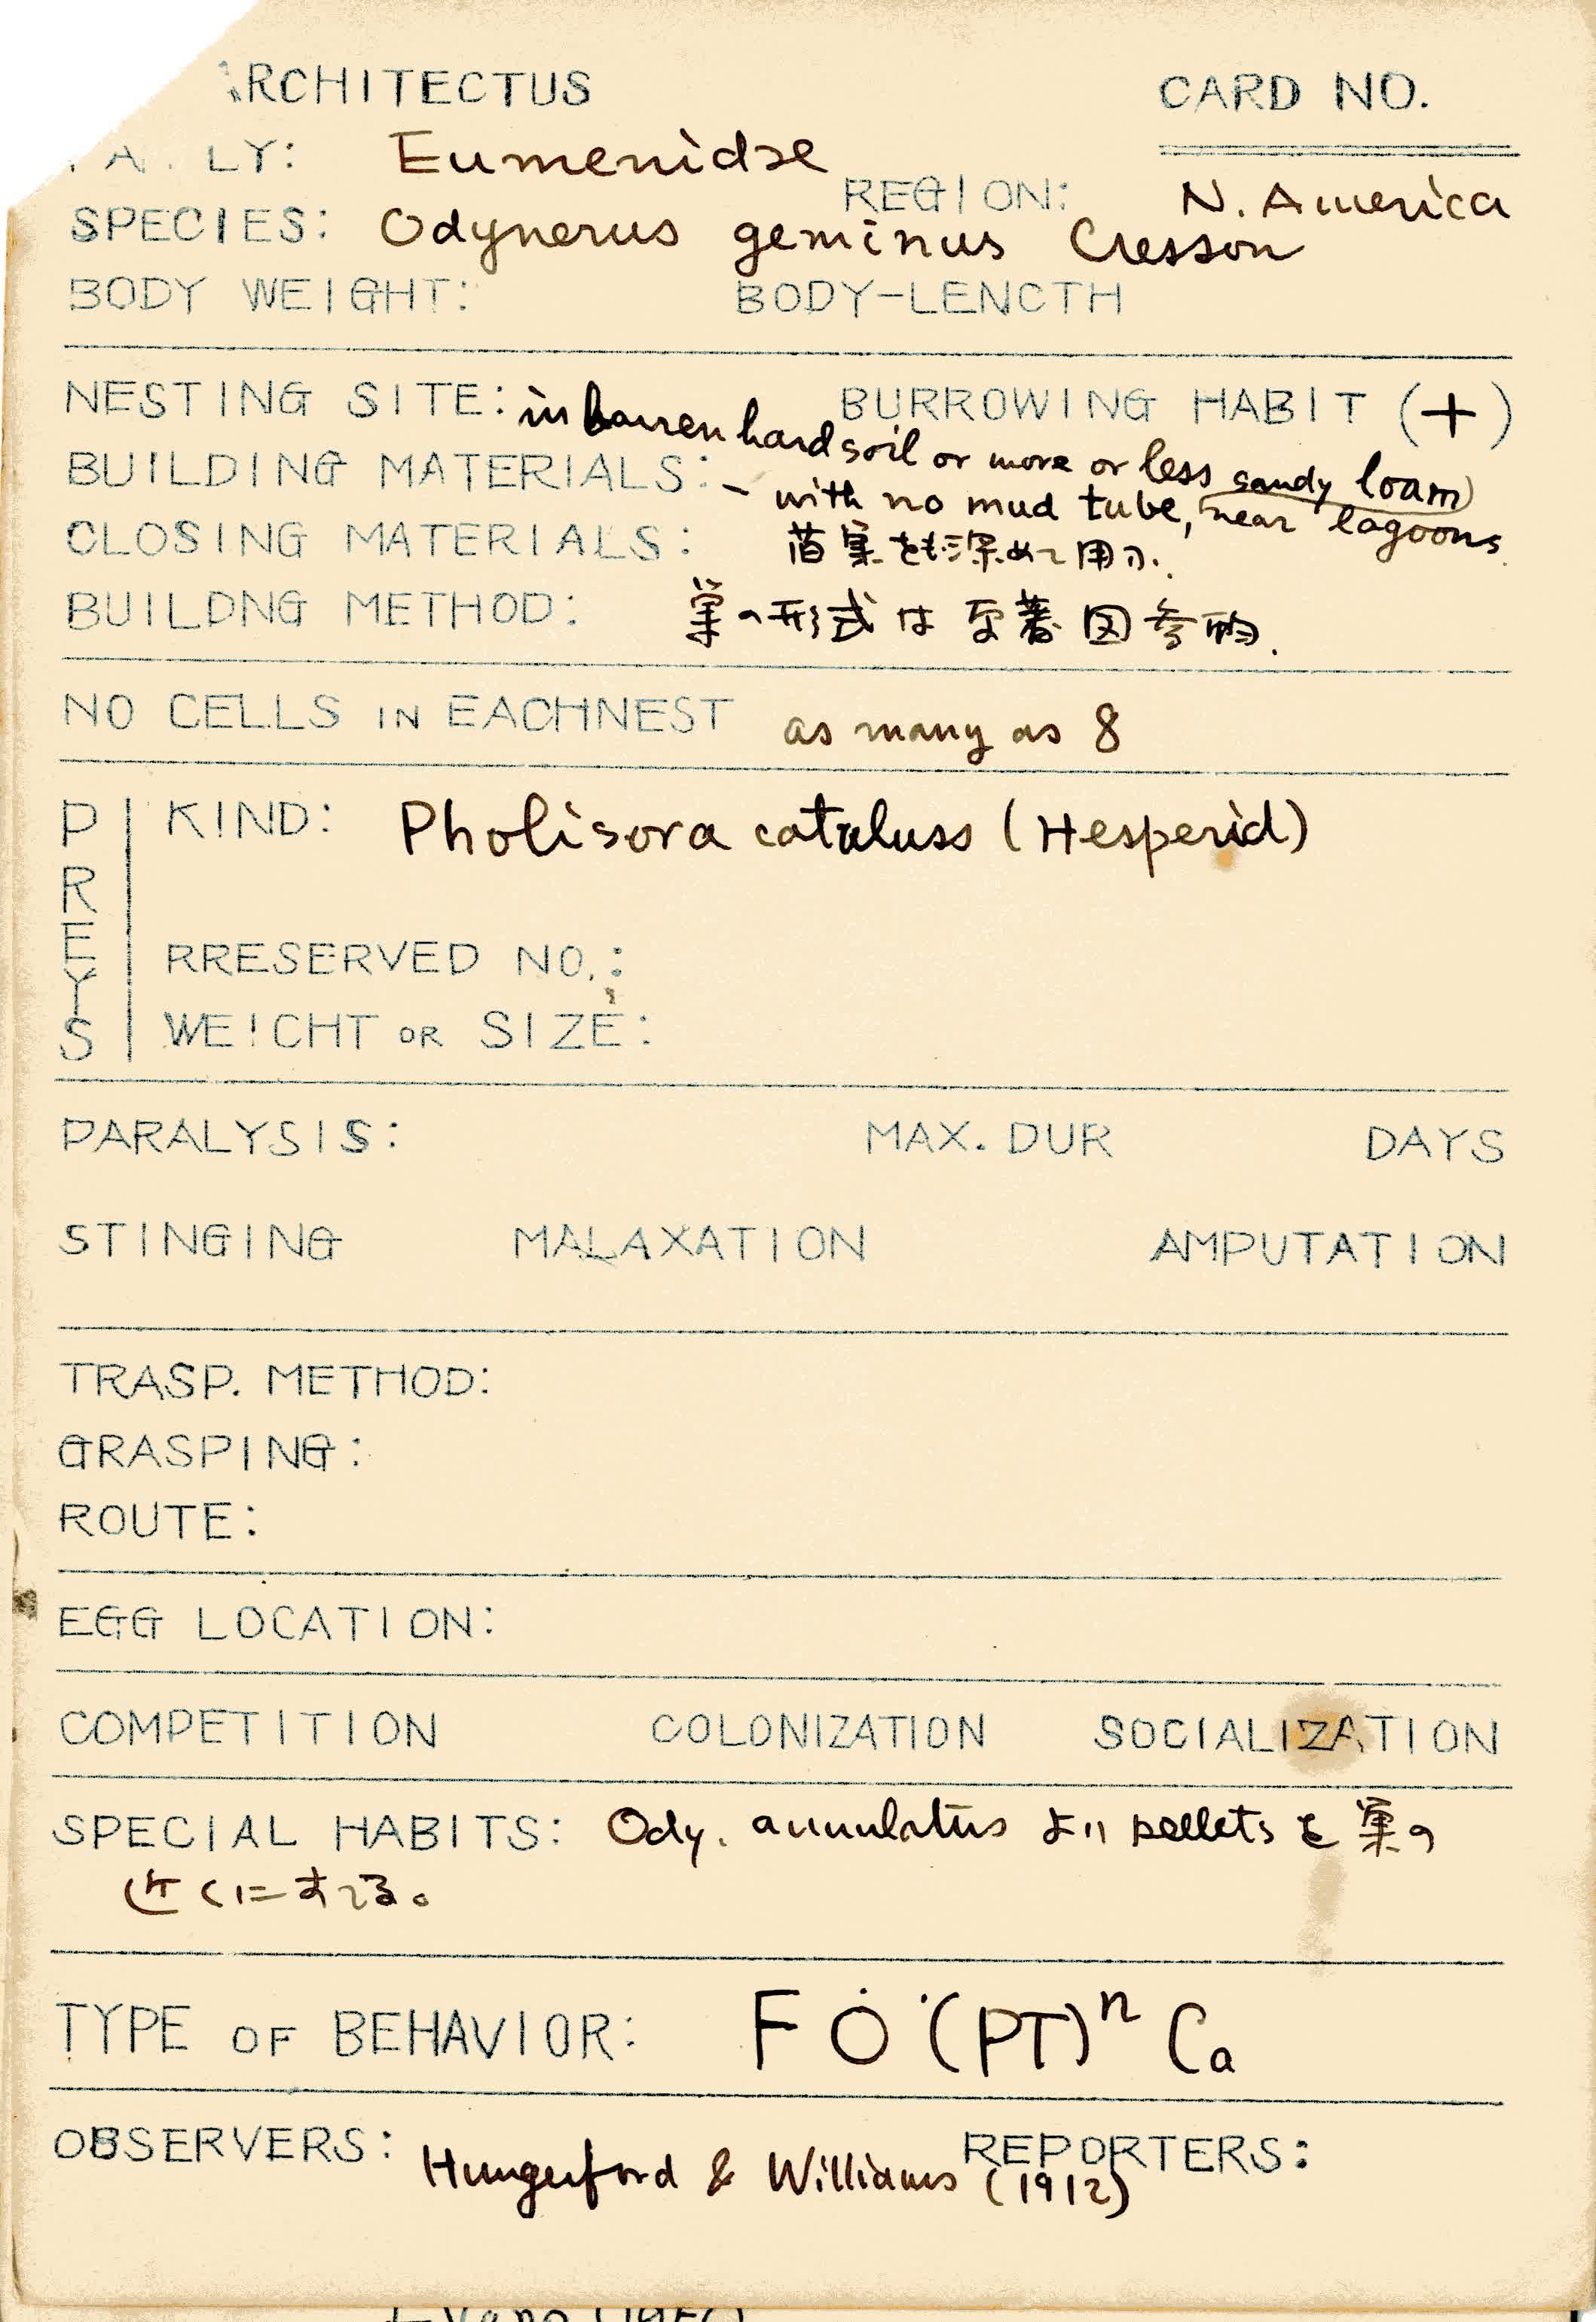 ARCHITECTUS CARD NO.
LY: Eumenidae
REGION: N. America
SPECIES: Odynerus geminus Cresson
BODY WEIGHT: BODY-LENCTH
NESTING SITE: in barren hard soil or more or less sandy loam BURROWING HABIT (+)
BUILDING MATERIALS: - with no mud tube, near lagoons.
CLOSING MATERIALS: 古巣をも深めて用う.
BUILDNG METHOD: 巣の形式は 原著図参照.
NO CELLS IN EACHNEST as many as 8
PREYS
KIND: Pholisora cataluss (Hesperid)
RRESERVED NO.:
WEICHT OR SIZE:
PARALYSIS: MAX. DUR DAYS
STINGING MALAXATION AMPUTATION
TRASP. METHOD:
GRASPING:
ROUTE:
EGG LOCATION:
COMPETITION COLONIZATION SOCIALIZATION
SPECIAL HABITS: Ody. annulatus より pellets を 巣の
近くにすてる。
TYPE OF BEHAVIOR: F O (PT)ⁿ Ca
OBSERVERS: Hungerford & Williams (1912) REPORTERS: